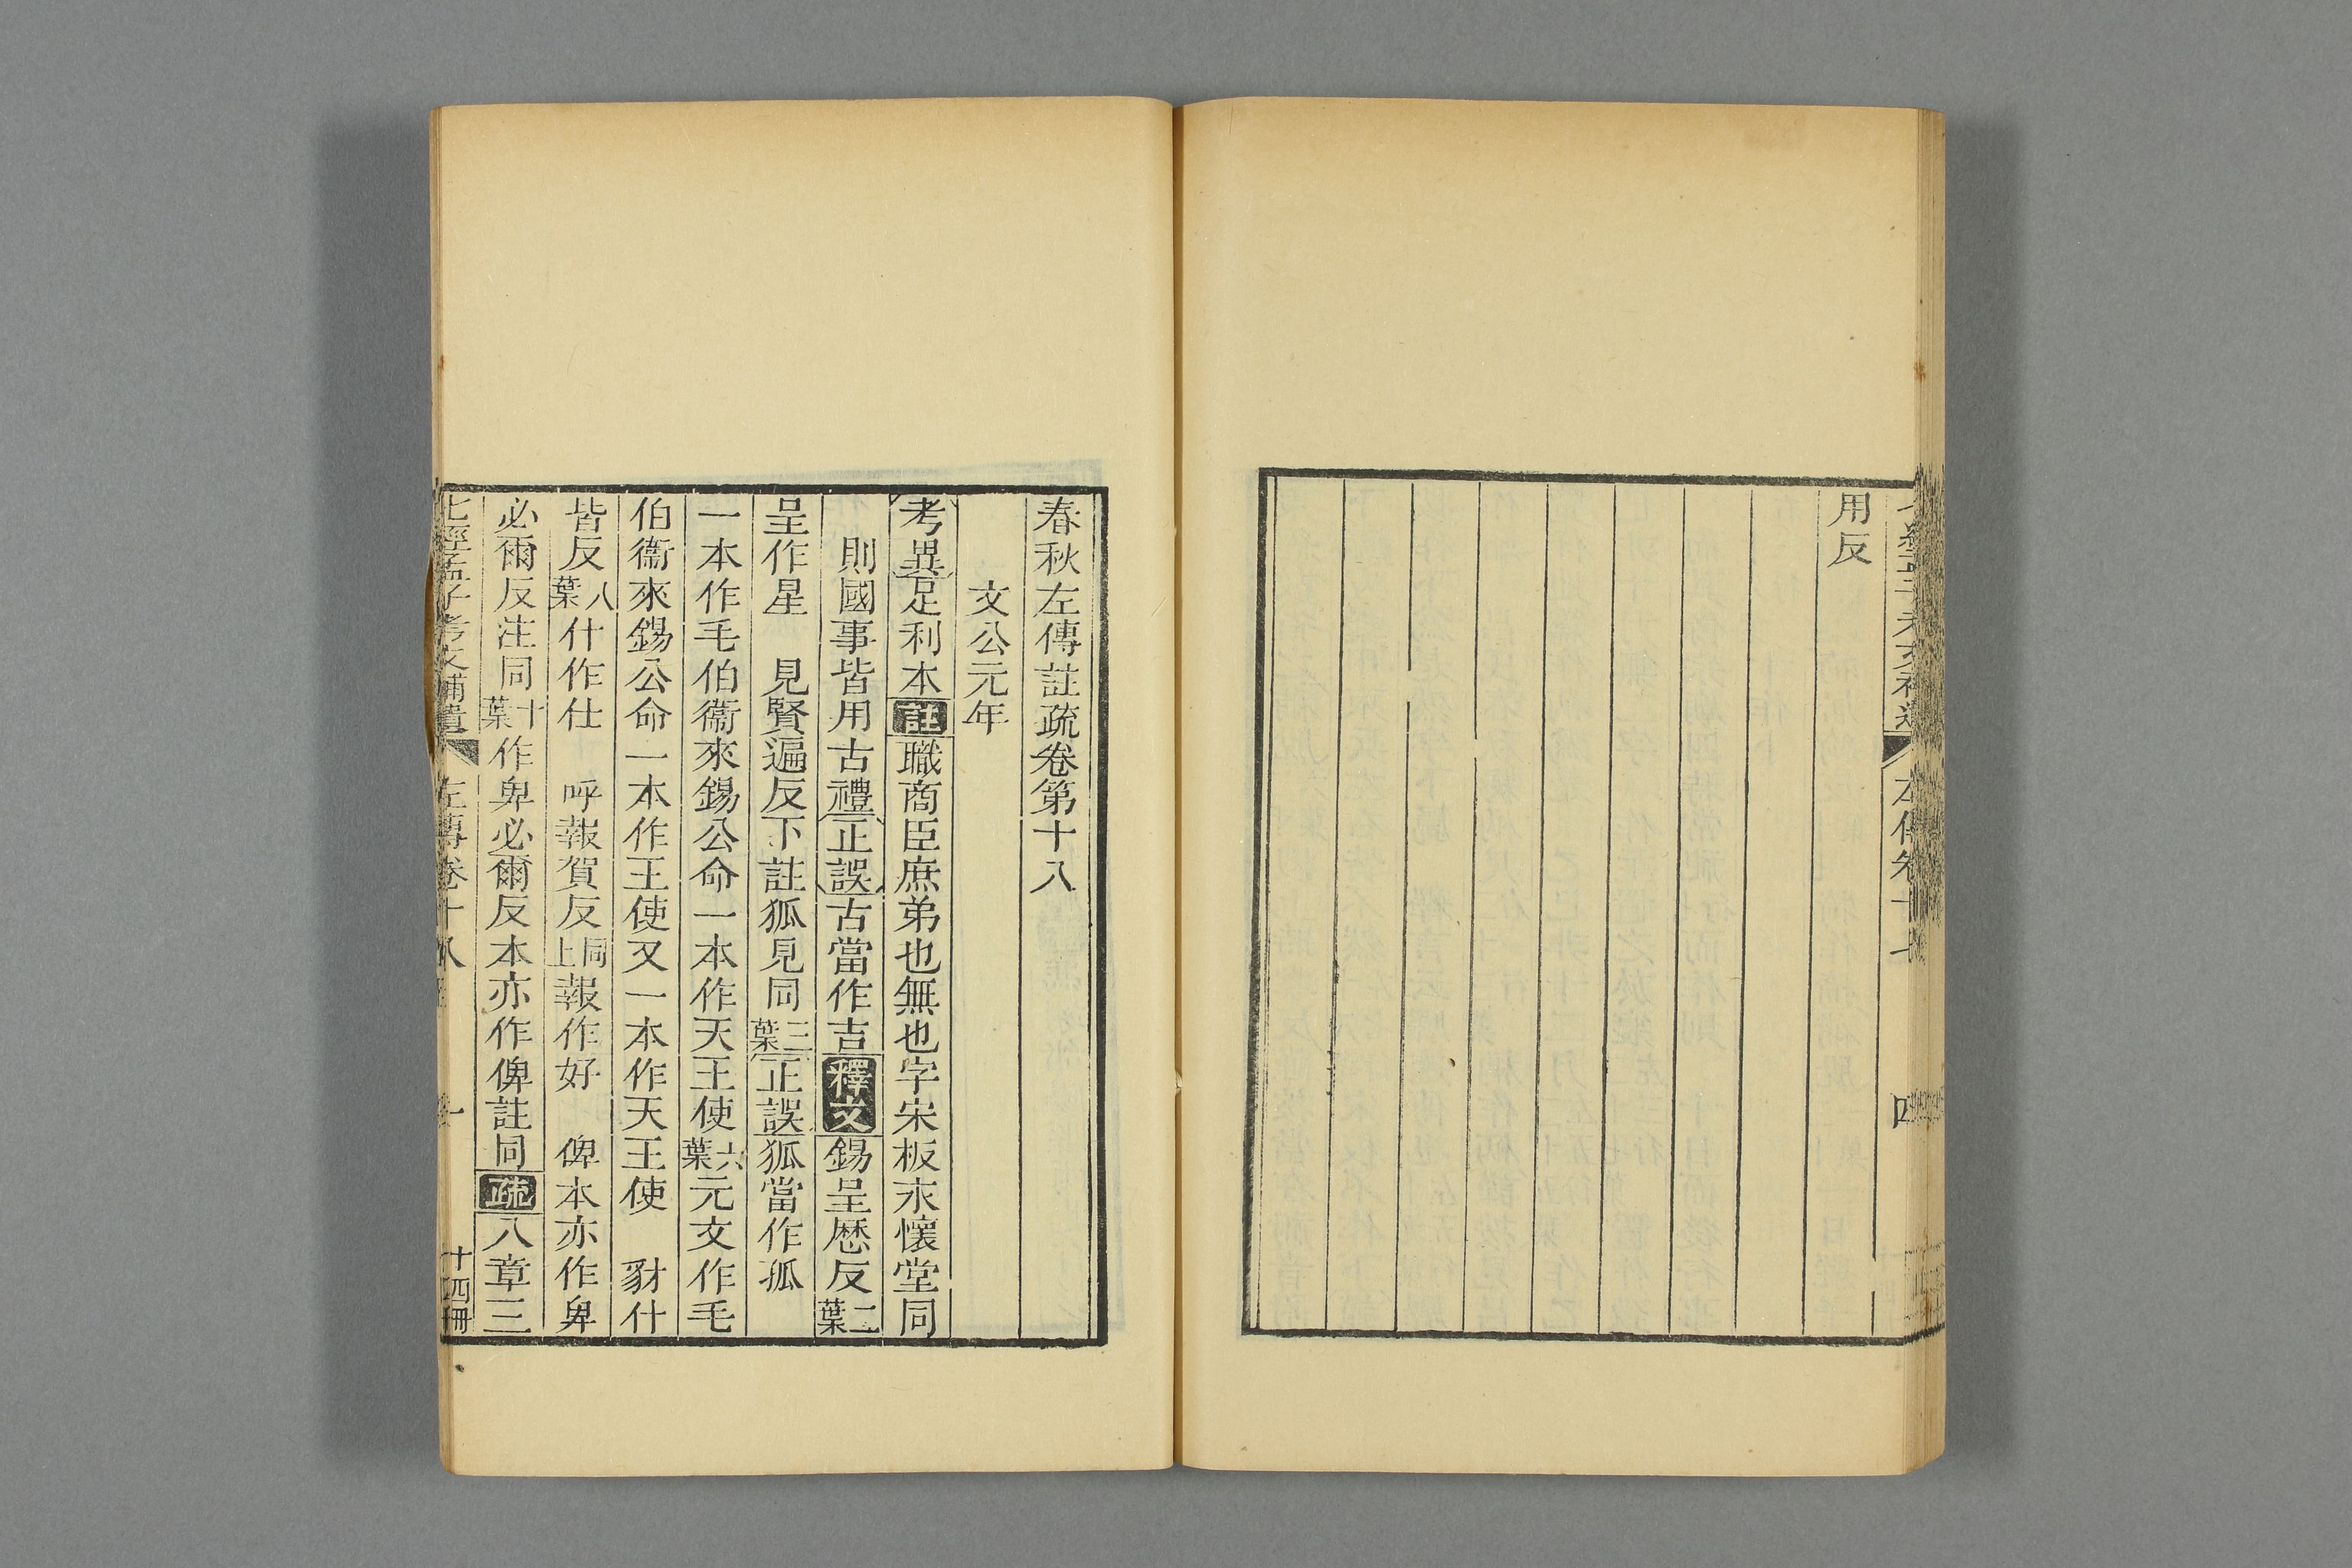 用反
春秋左傳註疏卷第十八
文公元年
考異足利本註職商臣庶弟也無也字宋板永懷堂同
則國事皆用古禮正誤古當作吉釋文錫呈歷反二葉
呈作星　見賢遍反下註狐見同三葉正誤狐當作孤
一本作毛伯衞來錫公命一本作天王使六葉元文作毛
伯衞來錫公命一本作王使又一本作天王使　豺什
皆反八葉什作仕　呼報賀反同上報作好　俾本亦作卑
必爾反注同十葉作卑必爾反本亦作俾註同疏八章三
七經孟子考文補遺　左傳卷十八　一　十四冊